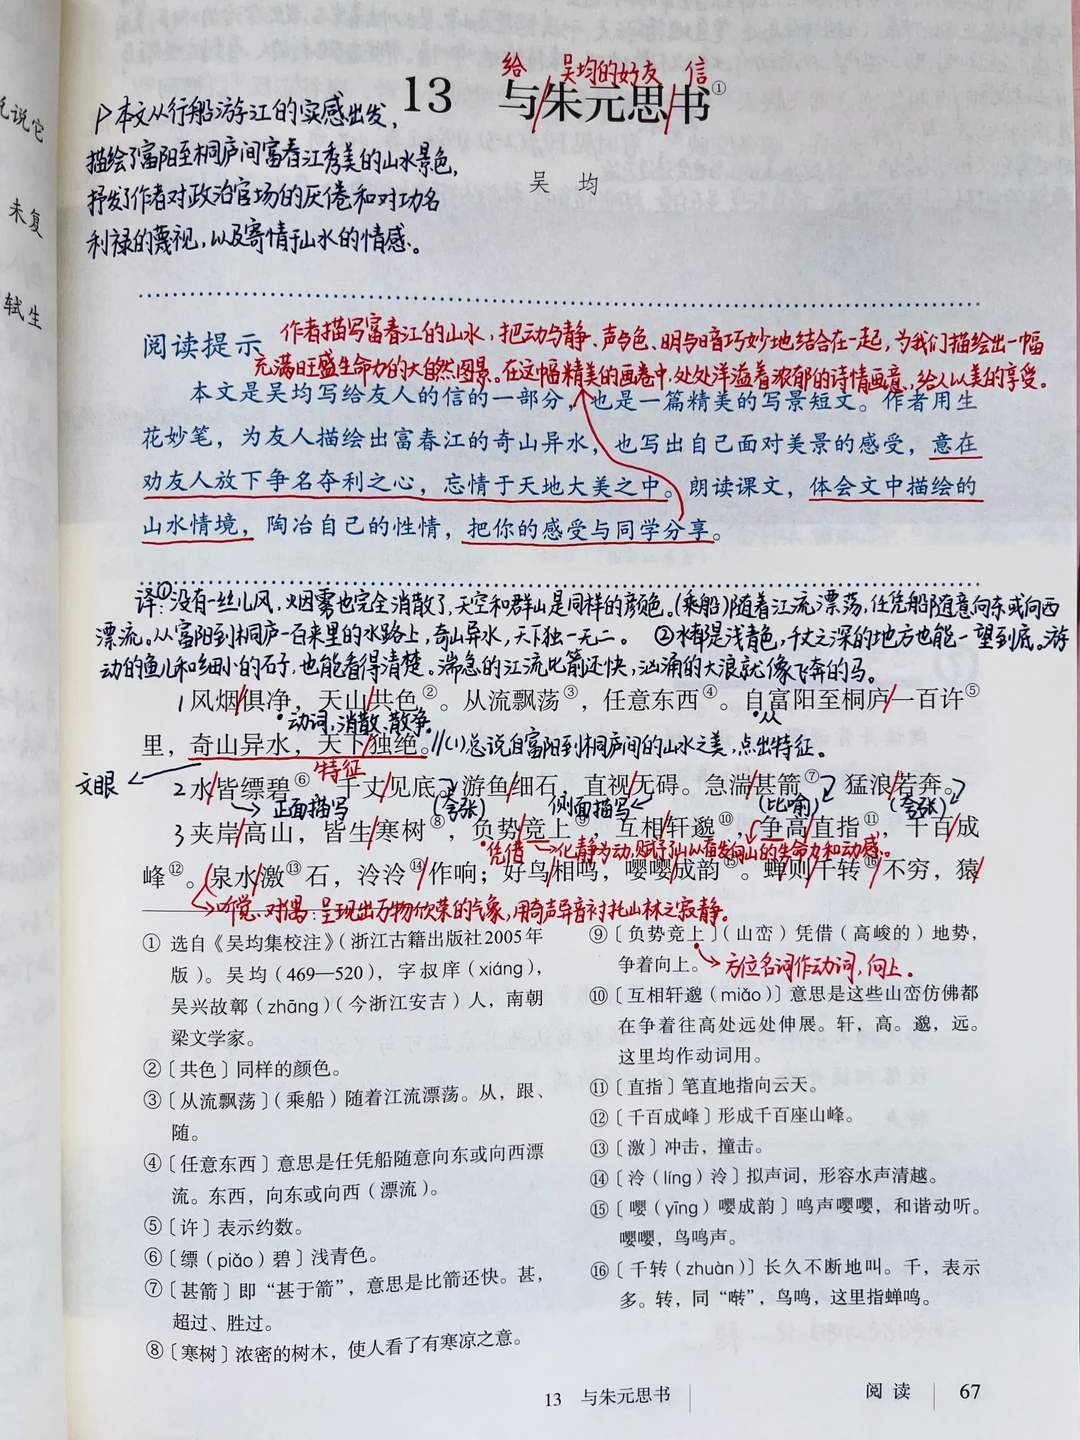 兑说它
未复
轼生
给 吴均的好友 信
13 与/朱元思/书①
吴 均
▷本文从行船游江的实感出发,
描绘了富阳至桐庐间富春江秀美的山水景色,
抒发了作者对政治官场的厌倦和对功名
利禄的蔑视,以及寄情于山水的情感。
阅读提示
作者描写富春江的山水,把动与静、声与色、明与暗巧妙地结合在一起,为我们描绘出一幅
充满旺盛生命力的大自然图景。在这幅精美的画卷中,处处洋溢着浓郁的诗情画意,给人以美的享受。
本文是吴均写给友人的信的一部分,也是一篇精美的写景短文。作者用生
花妙笔,为友人描绘出富春江的奇山异水,也写出自己面对美景的感受,意在
劝友人放下争名夺利之心,忘情于天地大美之中。朗读课文,体会文中描绘的
山水情境,陶冶自己的性情,把你的感受与同学分享。
译:①没有一丝儿风,烟雾也完全消散了,天空和群山是同样的颜色。(乘船)随着江流漂荡,任凭船随意向东或向西
漂流。从富阳到桐庐一百来里的水路上,奇山异水,天下独一无二。 ②水都是浅青色,千丈之深的地方也能一望到底。游
动的鱼儿和细小的石子,也能看得清楚。湍急的江流比箭还快,汹涌的大浪就像飞奔的马。
1风烟/俱净,天山/共色②。从流飘荡③,任意东西④。自富阳至桐庐/一百许⑤
动词,消散、散净。
从
里,奇山异水,天下/独绝。//(1)总说自富阳到桐庐间的山水之美,点出特征。
文眼
特征
2水/皆缥碧⑥,千丈/见底。游鱼/细石,直视/无碍。急湍/甚箭⑦,猛浪/若奔。
正面描写 (夸张) 侧面描写 (比喻) (夸张)
3夹岸/高山,皆生/寒树⑧,负势/竞上⑨,互相/轩邈⑩,争高/直指⑪,千百/成
凭借 化静为动,赋予山以奋发向上的生命力和动感。
峰⑫。泉水/激⑬石,泠泠⑭/作响;好鸟/相鸣,嘤嘤/成韵⑮。蝉则/千转⑯/不穷,猿/
听觉、对偶:呈现出万物欣荣的气象,用奇声异音衬托山林之寂静。
① 选自《吴均集校注》(浙江古籍出版社2005年
版)。吴均(469—520),字叔庠(xiáng),
吴兴故鄣(zhāng)(今浙江安吉)人,南朝
梁文学家。
②〔共色〕同样的颜色。
③〔从流飘荡〕(乘船)随着江流漂荡。从,跟、
随。
④〔任意东西〕意思是任凭船随意向东或向西漂
流。东西,向东或向西(漂流)。
⑤〔许〕表示约数。
⑥〔缥(piǎo)碧〕浅青色。
⑦〔甚箭〕即“甚于箭”,意思是比箭还快。甚,
超过、胜过。
⑧〔寒树〕浓密的树木,使人看了有寒凉之意。
⑨〔负势竞上〕(山峦)凭借(高峻的)地势,
争着向上。
方位名词作动词,向上。
⑩〔互相轩邈(miǎo)〕意思是这些山峦仿佛都
在争着往高处远处伸展。轩,高。邈,远。
这里均作动词用。
⑪〔直指〕笔直地指向云天。
⑫〔千百成峰〕形成千百座山峰。
⑬〔激〕冲击,撞击。
⑭〔泠(líng)泠〕拟声词,形容水声清越。
⑮〔嘤(yīng)嘤成韵〕鸣声嘤嘤,和谐动听。
嘤嘤,鸟鸣声。
⑯〔千转(zhuàn)〕长久不断地叫。千,表示
多。转,同“啭”,鸟鸣,这里指蝉鸣。
13 与朱元思书
阅读 67